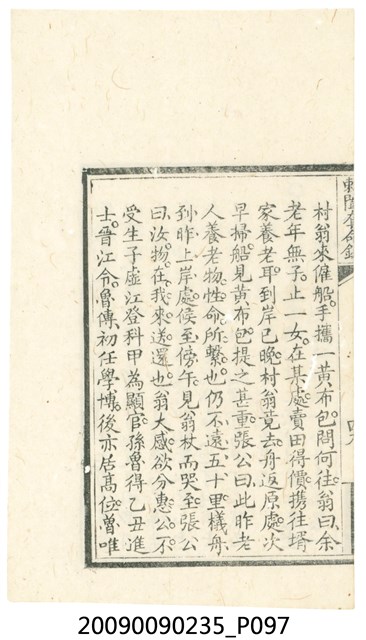 村翁來催船。手攜一黃布包。問何往。翁曰。余
老年無子。止一女。在某處賣田得價。携往壻
家養老耳。到岸已晚。村翁竟去。舟返原處。次
早掃船。見黃布包。提之甚重。張公曰。此昨老
人養老物。性命所繫也。仍不遠五十里。檥舟
到昨上岸處。俟至傍午。見翁杖而哭至。張公
曰。汝物在。我來送還也。翁大感。欲分惠。公不
受。生子虛江。登科甲為顯官。孫魯得。乙丑進
士。晉江令。魯傳。初任學博。後亦居高位。魯唯
20090090235_P097